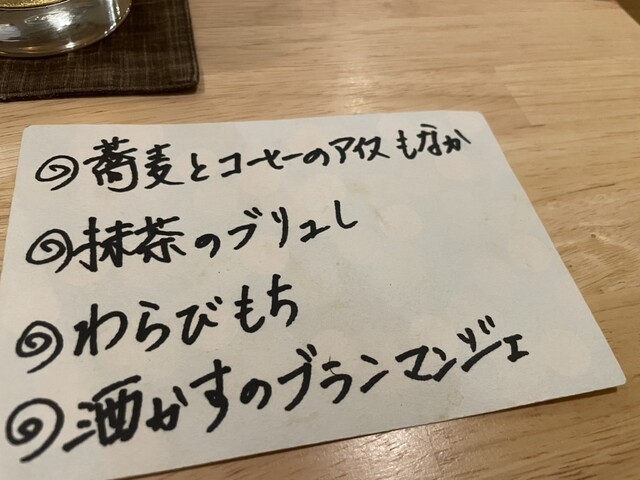 蕎麦とコーヒーのアイスもなか
抹茶のブリュレ
わらびもち
酒かすのブランマンジェ